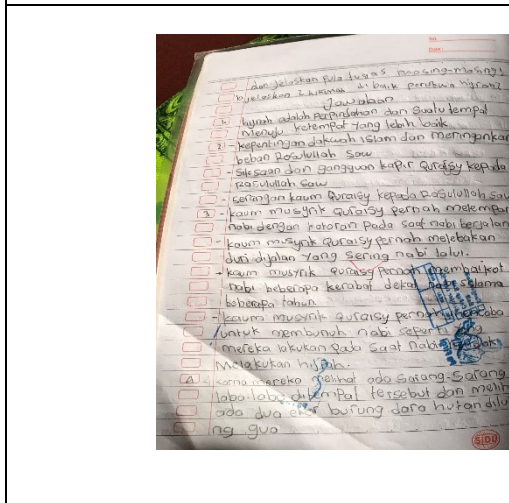 No.
Date :
dan jelaskan pula tugas masing-masing!
jelaskan 2 hikmah di balik peristiwa hijrah?
Jawaban
1. hijrah adalah perpindahan dari suatu tempat
menuju ketempat yang lebih baik
2. - kepentingan dakwah islam dan meringankan
beban Rosulullah saw
- siksaan dan gangguan kapir quraisy kepada
rasulullah saw
- serangan kaum Quraisy kepada Rosulullah saw
3 - kaum musyrik quraisy pernah melempar
nabi dengan kotoran pada saat nabi berjalan
- kaum musyrik quraisy pernah meletakan
duri dijalan yang sering nabi lalui.
- kaum musyrik quraisy pernah membaikot
nabi beberapa kerabat dekat nabi selama
beberapa tahun
- kaum musyrik quraisy pernah mencoba
untuk membunuh nabi seperti yang
mereka lakukan pada saat nabi
Melakukan hijrah.
4 - karna mereka melihat ada sarang-sarang
laba-laba di tempat tersebut dan melih
ada dua ekor burung dara hutan dilu
ng gua
SIDU